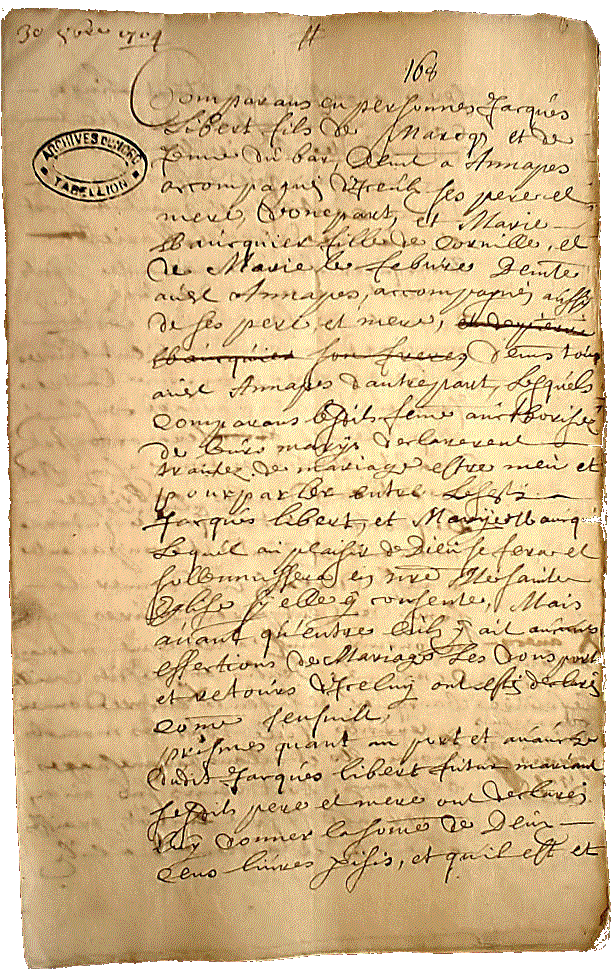 30 9bre 1704
168
ARCHIVES DU NORD
TABELLION
Comparans en personnes Jacques
Libert fils de Marcq et de
du bar, demt a Annapes
accompagné d'Iceulx ses pere et
mere d'une part, et Marie
Waucquier fille de Cornille, et
de Marie le febure demte
audt Annapes, accompagné aussy
de ses pere et mere,
Waucquier son frere, demt tous
audt Annapes d'autre part, Lesquels
Comparans lesdits feme aucthorisez
de leurs marys declarerent
traitez de mariage estre meu et
pourparlez entre lesdts
Jacques libert, et Marie Waucqr
lequel au plaisir de Dieu se fera et
sollennissera en nre Mere sainte
Eglise sy elle y consente, Mais
auant qu'entre eulx y ait aucunes
effections de Mariage Les dons port
et retours d'Iceluy ont estez declarez
Come sensuilt,
prismes quant au port et auance
dudit Jacques libert futur mariant
sesdits pere et mere ont declarez
luy donner la some de Deux
Cens liures pisis, et qu'il est et